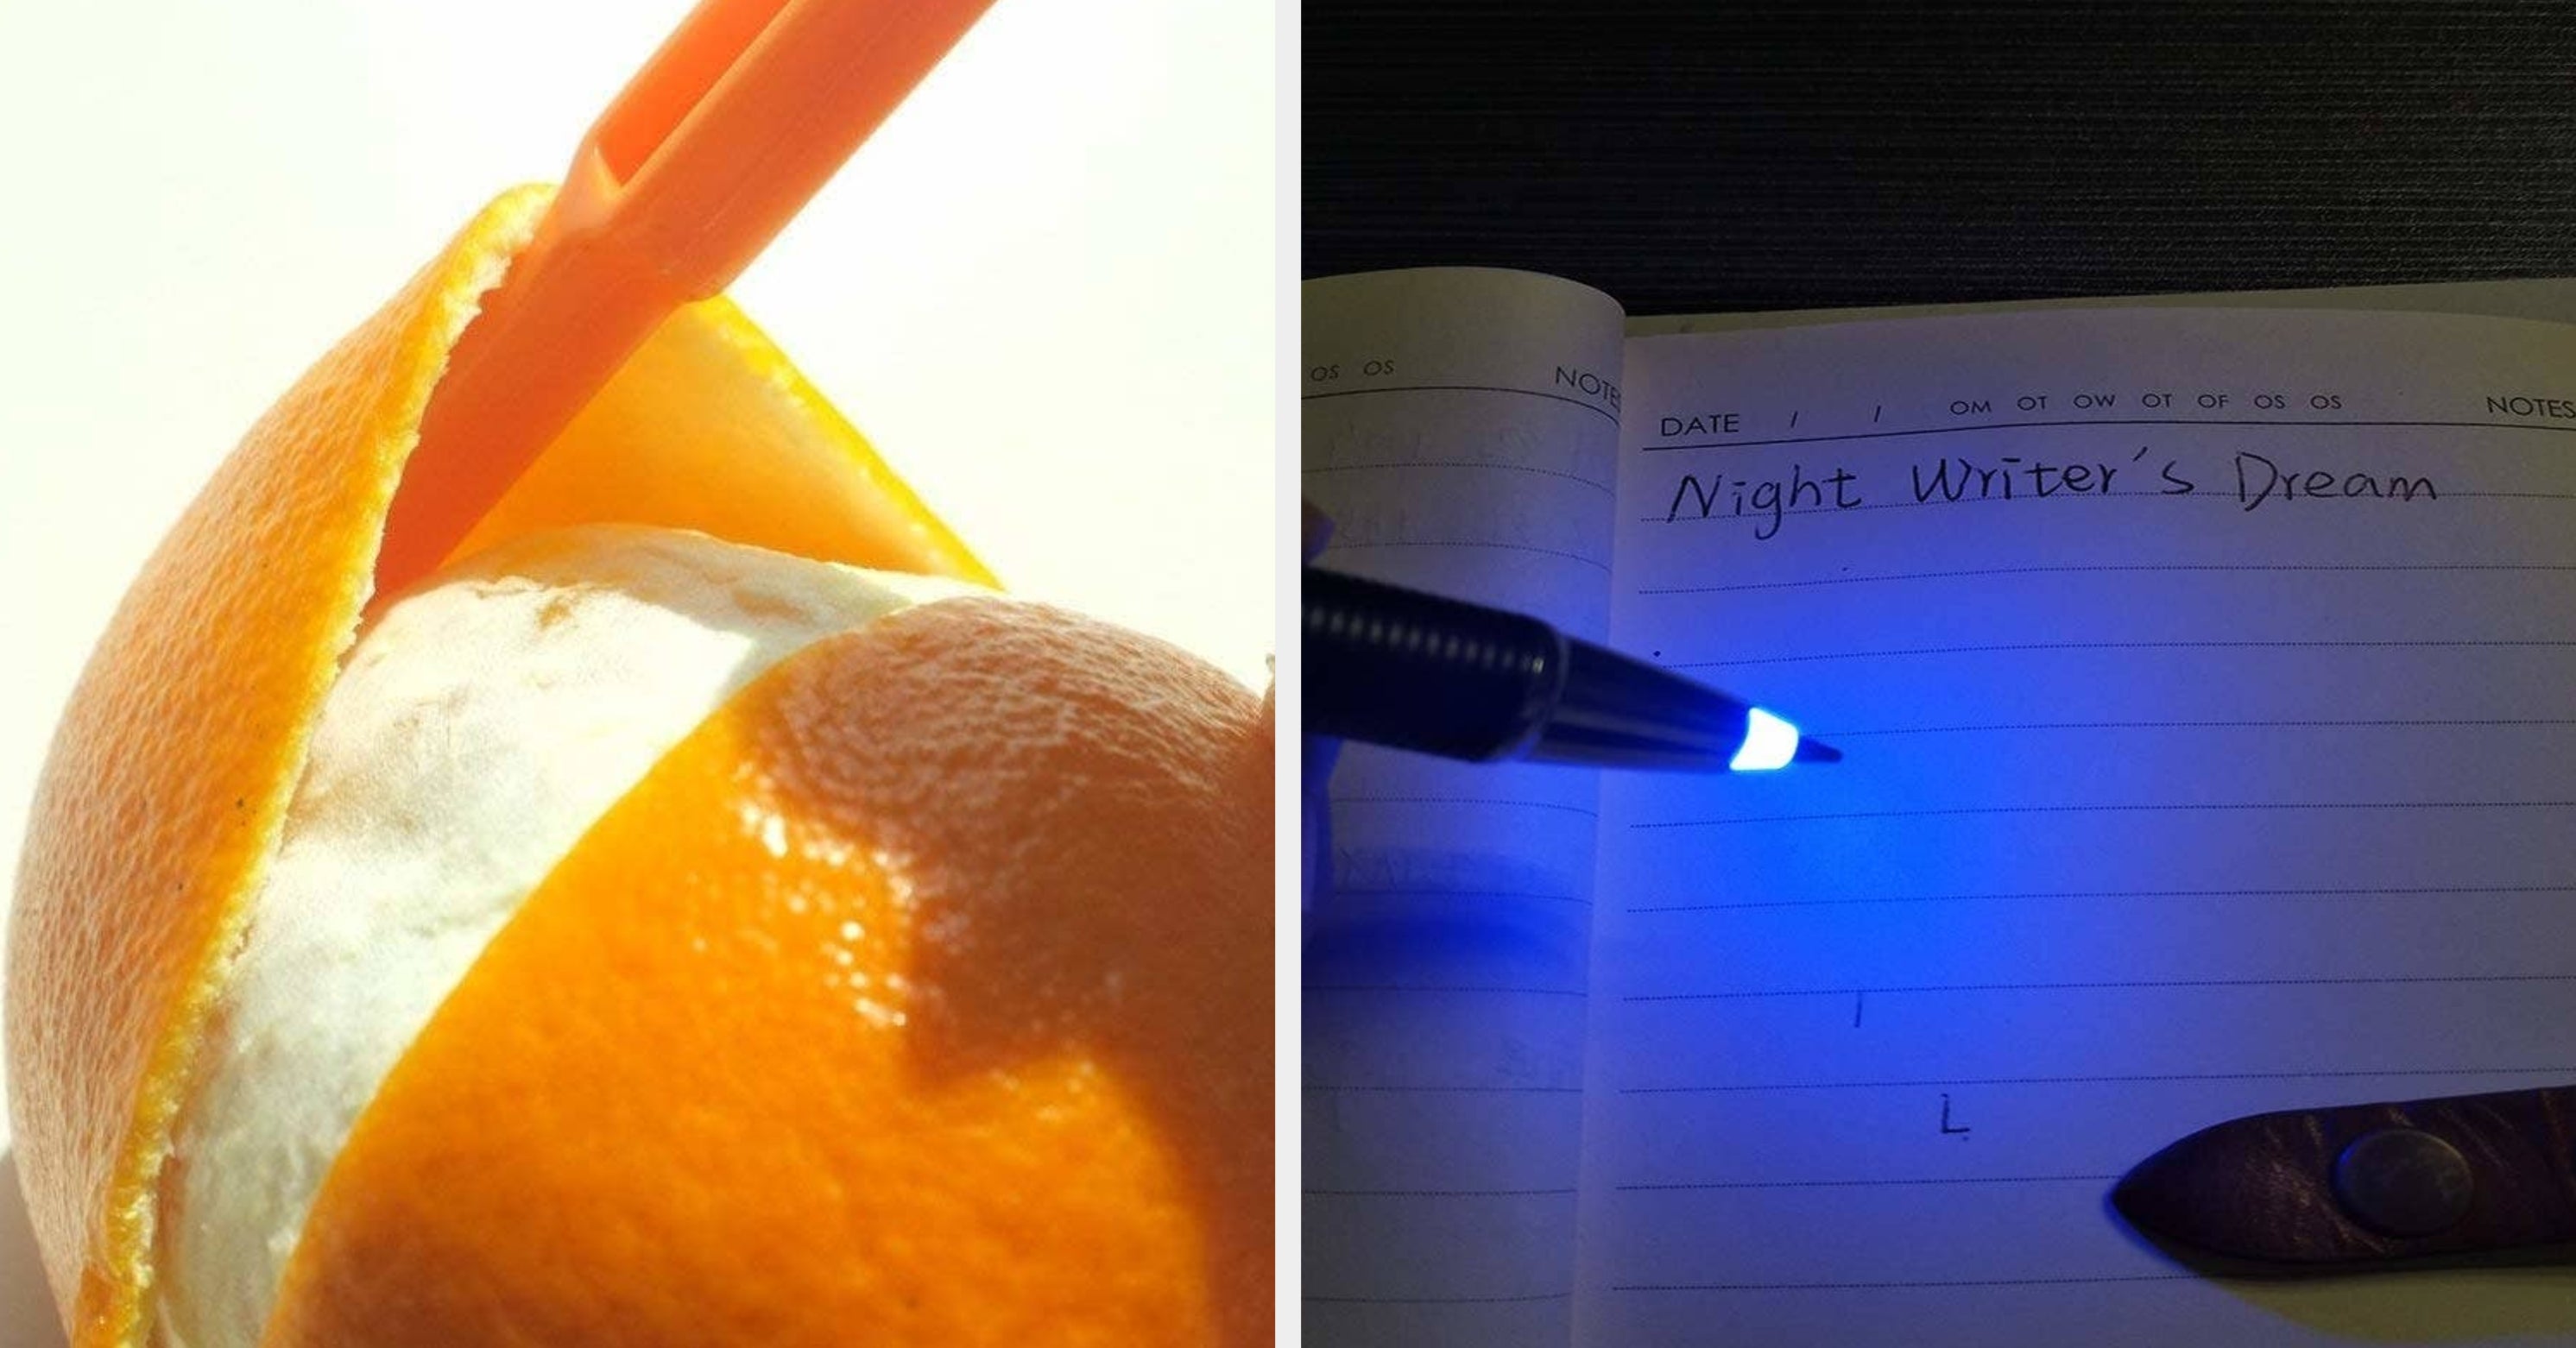 OS OS NOTES
DATE / / OM OT OW OT OF OS OS NOTES
Night Writer's Dream
L